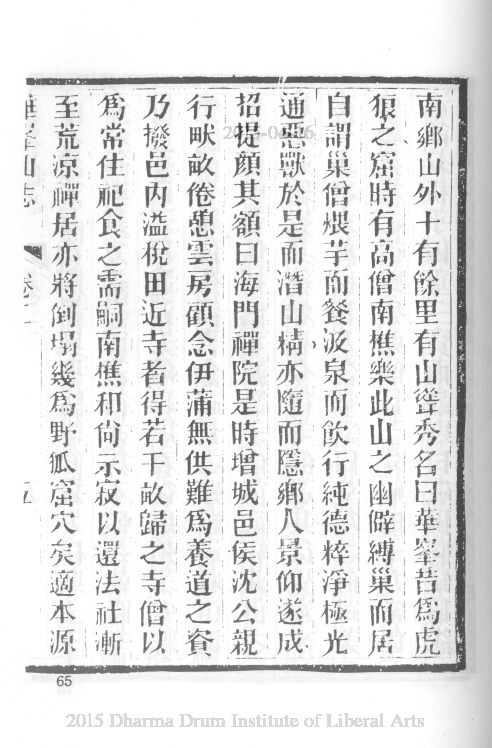 南鄉山外十有餘里有山聳秀名曰華峯昔爲虎
狼之窟時有高僧南樵樂此山之幽僻縛巢而居
自謂巢僧煨芋而餐汲泉而飲行純德粹淨極光
通惡獸於是而潛山精亦隨而隱鄉人景仰遂成
招提顏其額曰海門禪院是時增城邑侯沈公親
行畎畝倦憩雲房顧念伊蒲無供難爲養道之資
乃撥邑內溢稅田近寺者得若干畝歸之寺僧以
爲常住祀食之需嗣南樵和尙示寂以還法社漸
至荒凉禪居亦將倒塌幾爲野狐窟穴矣適本源
華峯山志
卷二
五
65
2015 Dharma Drum Institute of Liberal Arts